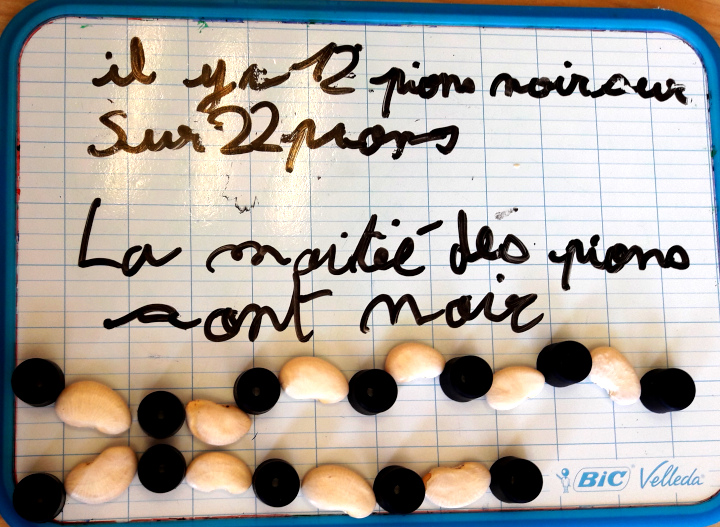 il y a 12 pions noir sur
Sur 22 pions
La moitié des pions
sont noir
BiC Velleda